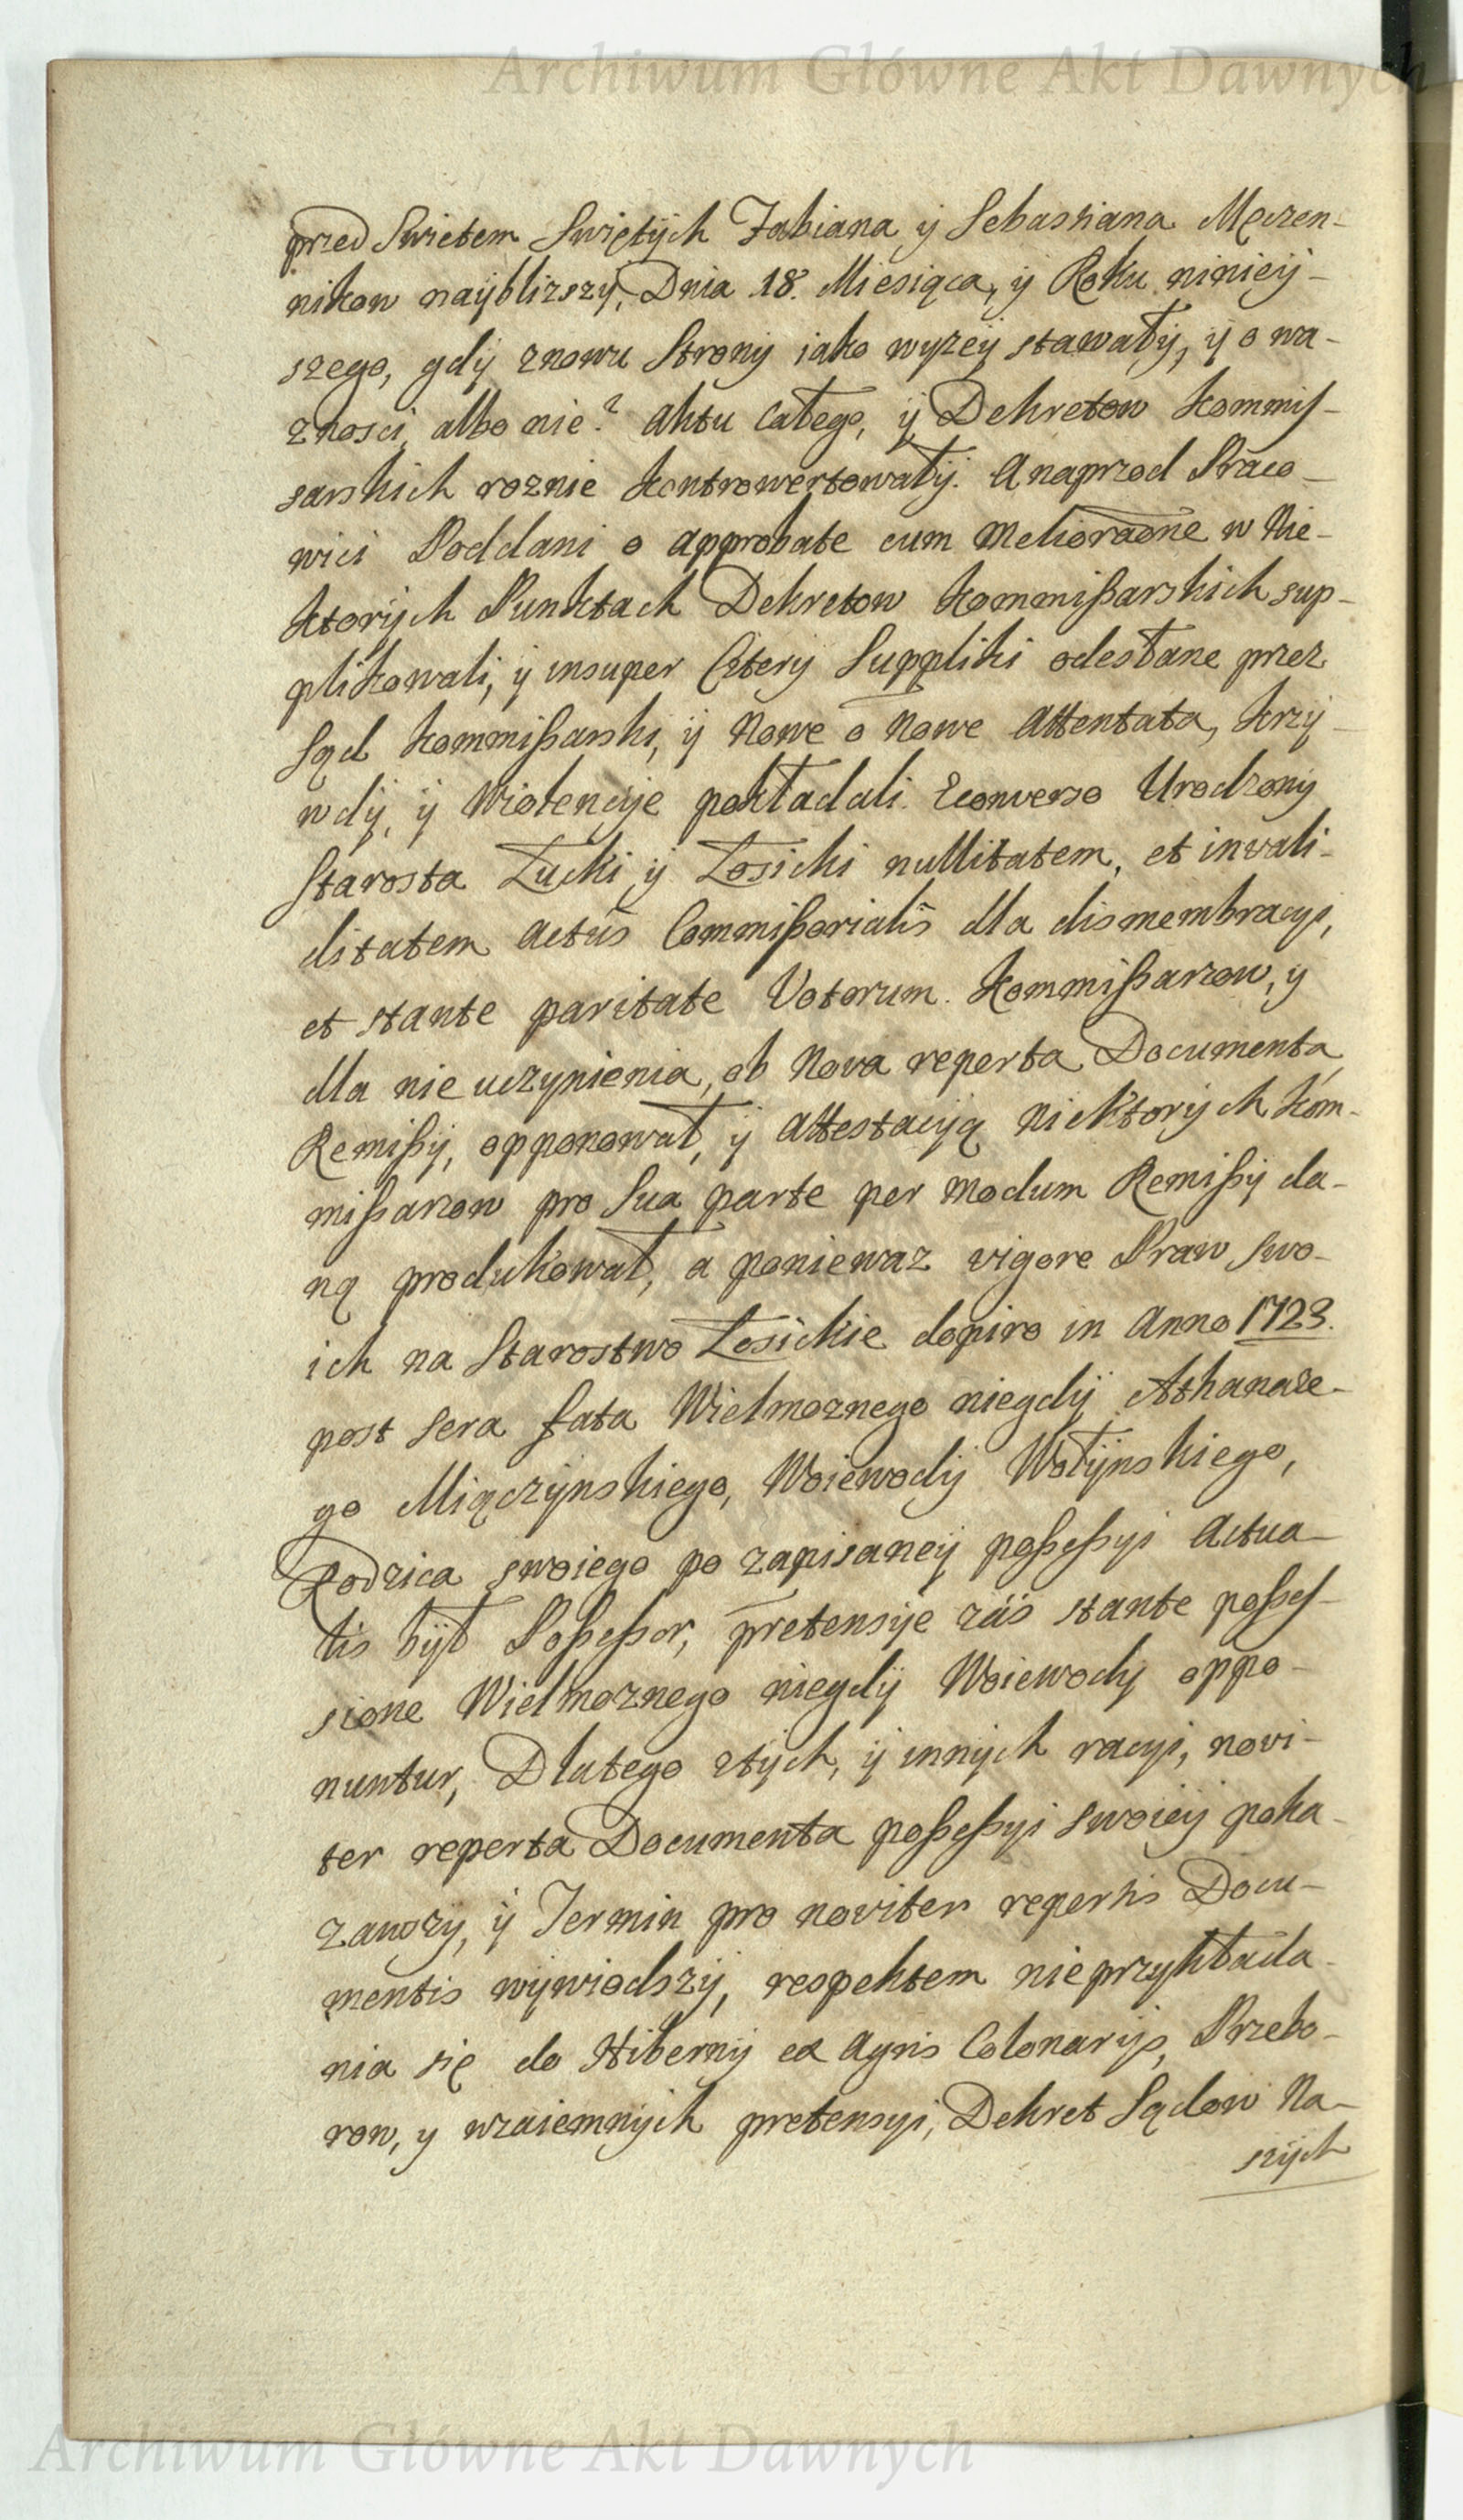 Archiwum Główne Akt Dawnych
przed Swietem Swiętÿch Fabiana ÿ Sebastiana Męczen-
nikow naÿblizszÿ, Dnia 18. Miesiąca, ÿ Roku ninieÿ-
szego, gdÿ znowu Stronÿ iako wyzeÿ stawałÿ, ÿ o wa-
znosci, albo nie? Aktu Całego, ÿ Dekretow Kommis-
sarskich roznie kontrowertowałÿ. A naprzod Praco-
wici Poddani o approbate cum Melioraone w Nie-
ktorÿch Punktach Dekretow Kommißarskich sup-
plikowali, ÿ insuper Czterÿ Suppliki odesłane przez
Sąd Kommißarski, ÿ Nowe o Nowe Attentata, krzÿ-
wdÿ, ÿ Wiolencÿe pokładali. Econverso Urodzonÿ
Starosta Łucki ÿ Łosicki nullitatem, et invali-
ditatem Actûs Commißorialis dla dismembracyi,
et stante paritate Votorum Kommißarzow, y
dla nie uczynienia, ob Nova reperta Documenta,
Remißÿ, opponował, ÿ Attestacÿą Niektorÿch Kom-
mißarzow pro Sua parte per Modum Remißÿ da-
ną produkował, a poniewaz vigore Praw Swo-
ich na Starostwo Łosickie dopiro in Anno 1723.
post Sera fata Wielmoznego niegdÿ Athanaze-
go Miączÿnskiego, Woiewodÿ Wołÿnskiego,
Rodzica swoiego po zapisaneÿ poßeßyi Actua-
lis bÿł Poßeßor, pretensÿe zäs stante poßes-
sione Wielmoznego niegdÿ Woiewodÿ oppo-
nuntur, Dlatego ztÿch, ÿ innÿch racyi, novi-
ter reperta Documenta poßeßyi swoieÿ poka-
zawszy, ÿ Termin pro noviter repertis Docu-
mentis wÿwiodszÿ, respektem nieprzykłada-
nia się do Hibernÿ ex Agris Colonarÿs, Przebo-
row, y wzaiemnÿch pretensyi, Dekret Sądow Na-
szÿch
Archiwum Główne Akt Dawnych